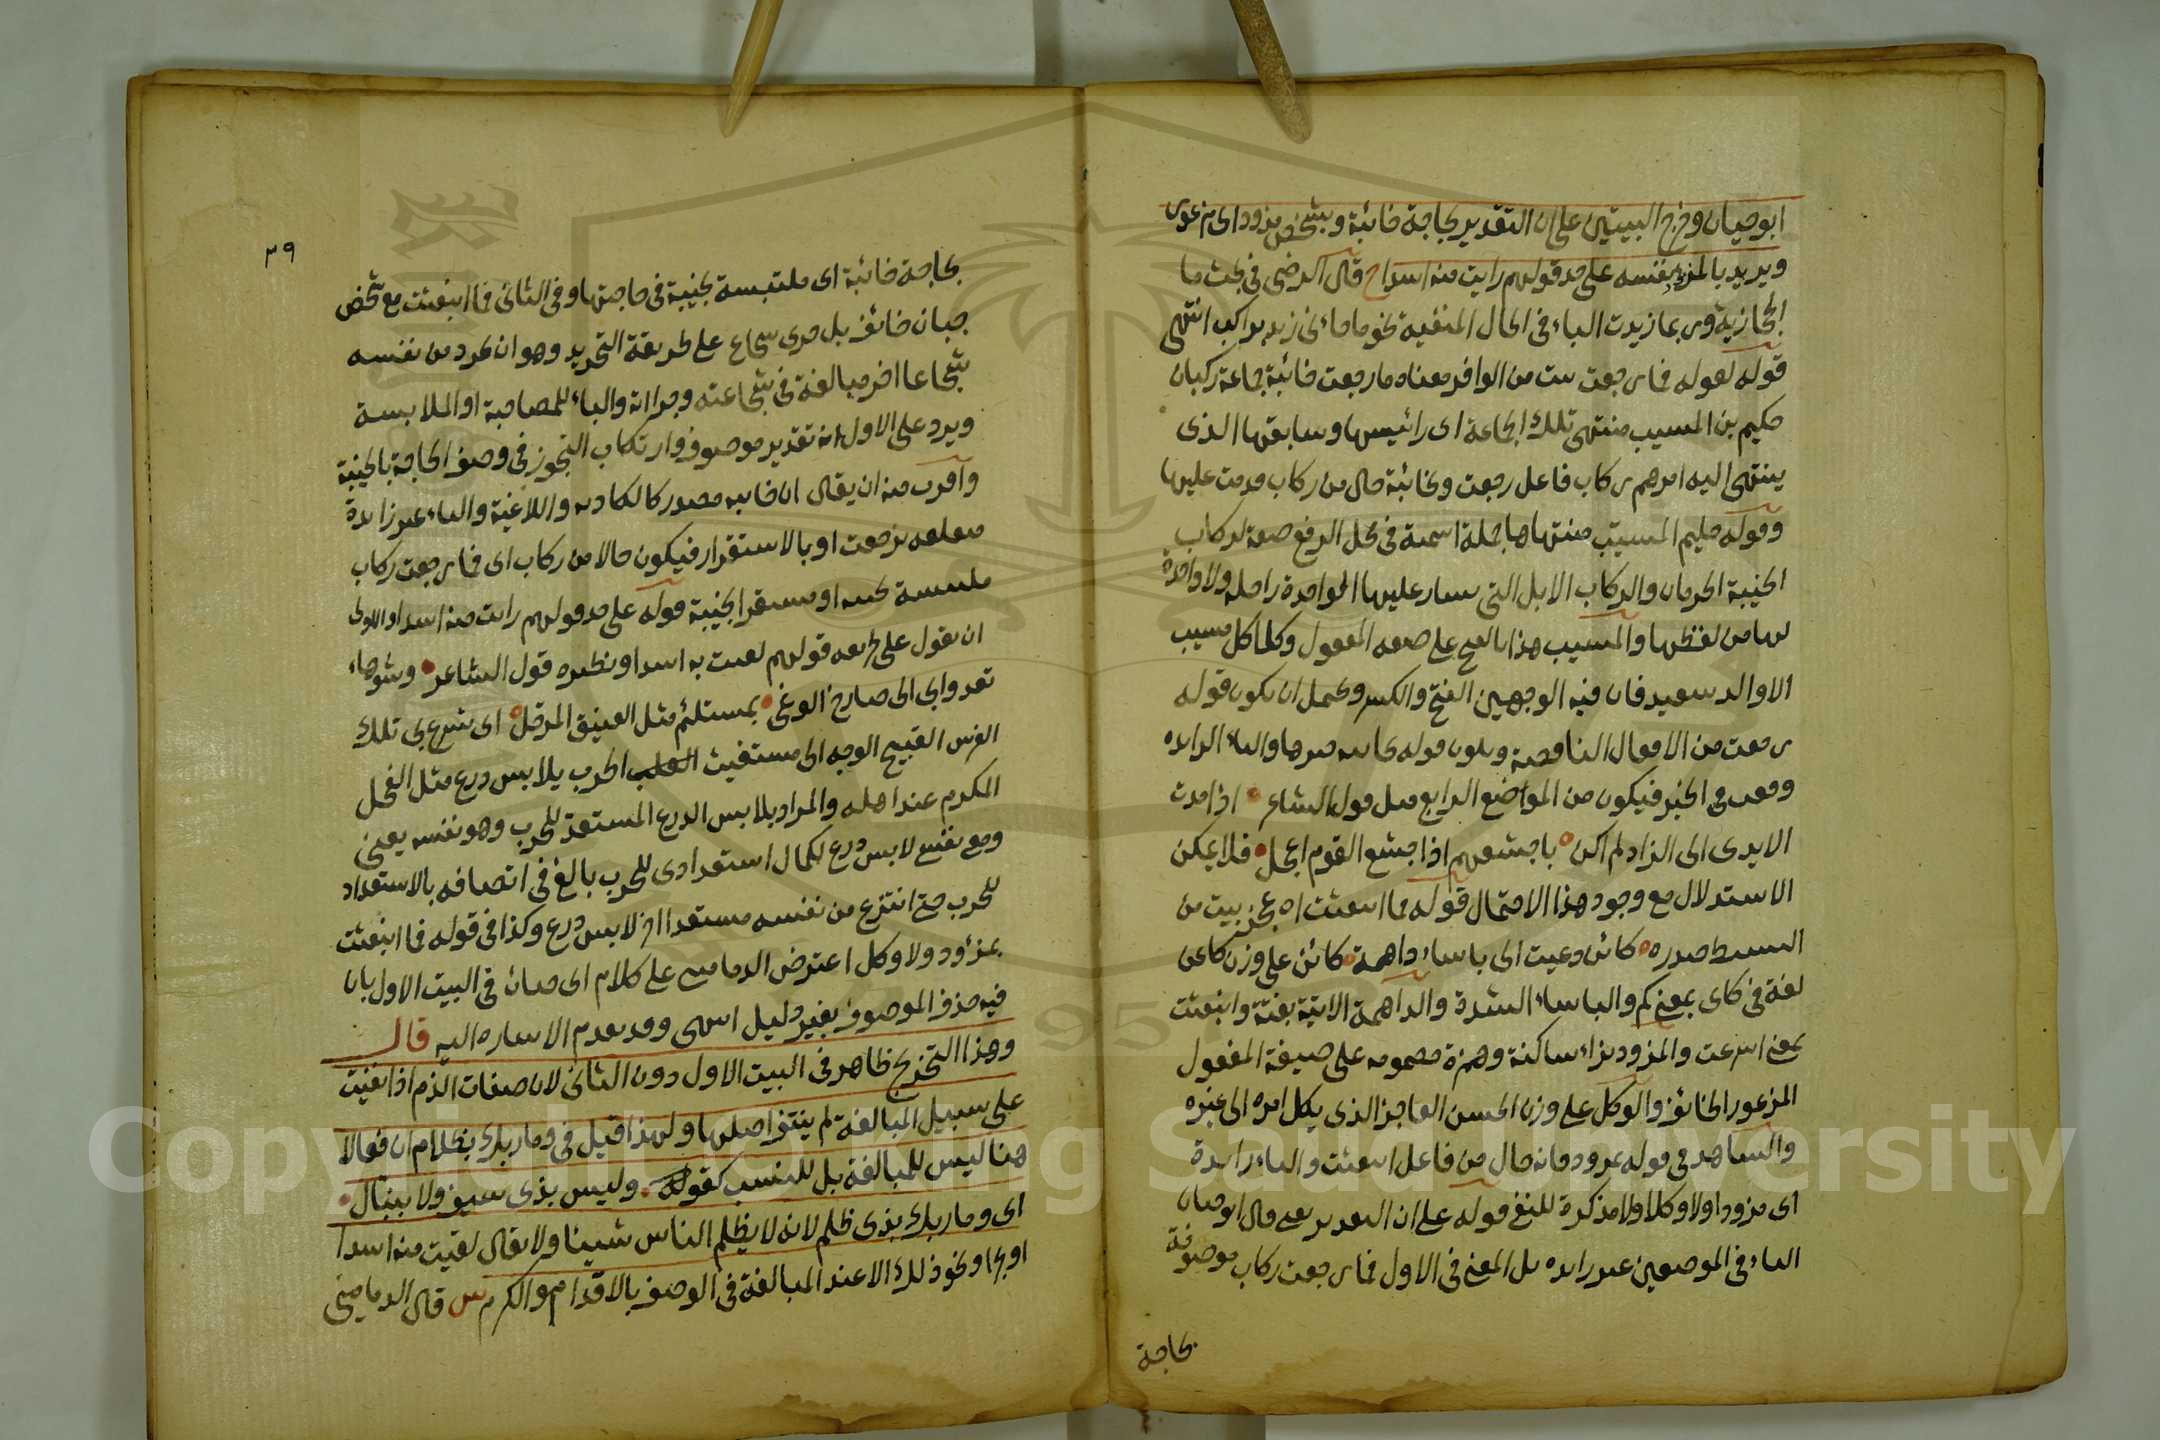 ابو حيان وخرج البيتين على ان التقدير بحاجة خائبة وبشخص مزوود اى مذعور
ويريد بالمزوود نفسه على حد قولهم رايت منه اسدا ح قال الرضى فى بحث ما
الحجازية وربما زيدت الباء فى الحال المنفية نحو ما جاءنى زيد براكب انتهى
قوله كقوله فما رجعت بيت من الوافر معناه ما رجعت خائبة جماعة ركبان
حكيم بن المسيب منتهى تلك الجماعة اى رائيسها وسابقها الذى
ينتهى اليه امرهم ركاب فاعل رجعت وبخائبة حال من ركاب قدمت عليها
وقوله حكيم المسيب منتهاها جملة اسمية فى محل الرفع صفة لركاب
الخيبة الحرمان والركاب الابل التى يسار عليها الواحدة راحلة ولا واحدة
لها من لفظها والمسيب هذا بالفتح على صيغة المفعول وكذا كل مسيب
الا والد سعيد فان فيه الوجهين الفتح والكسر ويحتمل ان يكون قوله
رجعت من الافعال الناقصة ويكون قوله بخائبة خبرها والباء الزايدة
وقعت فى الخبر فيكون من المواضع الرابع مثل قول الشاعر اذا مدت
الايدى الى الزاد لم اكن باجشعهم اذا جشع القوم اعجل فلا يمكن
الاستدلال مع وجود هذا الاحتمال قوله فما انبعثت اه عجز بيت من
البسيط صدره كائن دعيت الى باساء داهمة كائن على وزن كاعن
لغة فى كاى بمعنى كم والباساء الشدة والداهمة الاتية بغتة وانبعثت
بمعنى اسرعت والمزوود بزاء ساكنة وهمزة مضمومة على صيغة المفعول
المذعور الخائف والوكل على وزن الحسن العاجز الذى يكل امره الى غيره
والشاهد فى قوله بمزوود فانه حال من فاعل انبعثت والباء زايدة
اى مزوودا ولا وكلا ولا مذكرة للنفى قوله على ان التقدير يعنى قال ابو حيان
الباء فى الموضعين غير زايده بل المعنى فى الاول فما رجعت ركاب موصوفة
بحاجة
٣٩
بحاجة خائبة اى ملتبسة بخيبة فى حاجتها وفى الثانى فما انبعثت مع شخص
جبان خائف بل جرى شجاع على طريقة التجريد وهو ان يجرد من نفسه
شجاعا اخر مبالغة فى شجاعته وجراته والباء للمصاحبة او الملابسة
ويرد على الاول انه تقدير موصوف وارتكاب التجوز فى وصف الحاجة بالخيبة
واقرب منه ان يقال ان خائبه مصدر كالكاذبه واللاغية والباء غير زايدة
متعلقه برجعت او بالاستقرار فيكون حالا من ركاب اى فما رجعت ركاب
ملتبسة بخيبة او مستقرا بخيبة قوله على حد قولهم رايت منه اسدا والاولى
ان يقول على طريقه قولهم لقيت به اسدا ونظيره قول الشاعر وشوهاء
تعدو بى الى صارخ الوغى بمستلئم مثل العينق المرحل اى تسرع بى تلك
الفرس القبيح الوجه الى مستغيث الحرب بلابس درع مثل الفحل
المكرم عند اهله والمراد بلابس الدرع المستعد للحرب وهو نفسه يعنى
ومع نفسى لابس درع لكمال استعدادى للحرب بالغ فى اتصافه بالاستعداد
للحرب حتى انتزع من نفسه مستعدا اخر لابس درع وكذا فى قوله فما انبعثت
بمزؤود ولا وكل اعترض الدمامينى على كلام ابى حيان فى البيت الاول بان
فيه حذف الموصوف بغير دليل انتهى وقد تقدم الاشاره اليه قال
وهذا التخريج ظاهر فى البيت الاول دون الثانى لان صفات الذم اذا نفيت
على سبيل المبالغة لم ينتف اصلها ولهذا قيل فى وما ربك بظلام ان فعالا
هنا ليس للمبالغة بل للنسب كقوله وليس بذى سيف ولا بنبال
اى وما ربك بذى ظلم لانه لا يظلم الناس شيئا ولا يقال لقيت منه اسدا
او بحرا ونحو ذلك الا عند المبالغة فى الوصف بالاقدام والكرم س قال الدمامينى
Copyright © King Saud University
1957